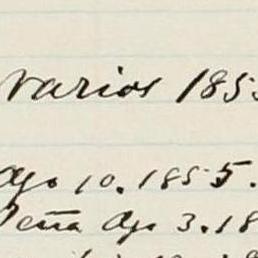 Varios 185
Ago 10. 1855.
Peña Ago 3. 18